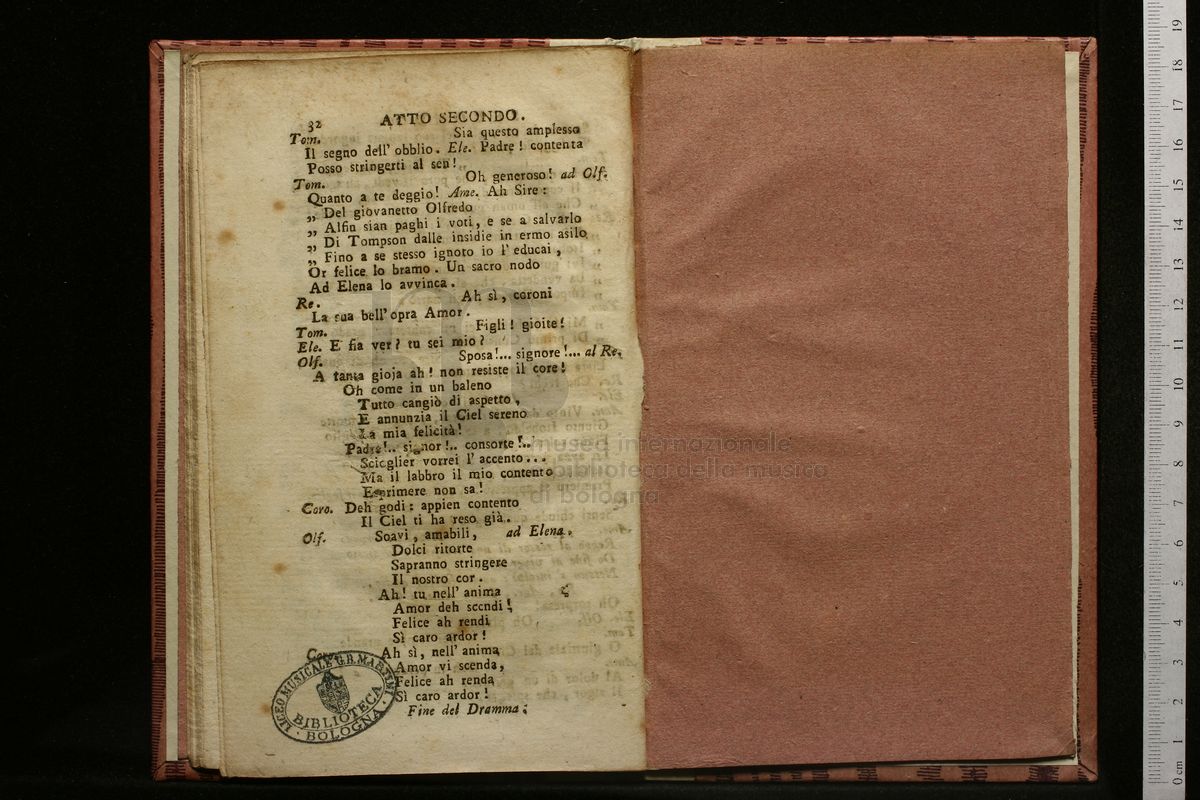 32 ATTO SECONDO.
Tom. Sia questo amplesso
Il segno dell' obblio. Ele. Padre! contenta
Posso stringerti al sen!
Tom. Oh generoso! ad Olf.
Quanto a te deggio! Ame. Ah Sire:
„ Del giovanetto Olfredo
„ Alfin sian paghi i voti, e se a salvarlo
„ Di Tompson dalle insidie in ermo asilo
„ Fino a se stesso ignoto io l' educai,
Or felice lo bramo. Un sacro nodo
Ad Elena lo avvinca.
Re. Ah sì, coroni
La sua bell' opra Amor.
Tom. Figli! gioite!
Ele. E fia ver? tu sei mio?
Olf. Sposa!... signore!... al Re.
A tanta gioja ah! non resiste il core!
Oh come in un baleno
Tutto cangiò di aspetto,
E annunzia il Ciel sereno
La mia felicità!
Padre!.. signor!.. consorte!..
Scioglier vorrei l' accento...
Ma il labbro il mio contento
Esprimere non sa!
Coro. Deh godi: appien contento
Il Ciel ti ha reso già.
Olf. Soavi, amabili, ad Elena.
Dolci ritorte
Sapranno stringere
Il nostro cor.
Ah! tu nell' anima
Amor deh scendi!
Felice ah rendi
Sì caro ardor!
Ah sì, nell' anima
Amor vi scenda,
Felice ah renda
Sì caro ardor!
Fine del Dramma.
LICEO MUSICALE G.B. MARTINI
BIBLIOTECA
· BOLOGNA ·
museo internazionale
biblioteca della musica
di bologna
0 cm 1 2 3 4 5 6 7 8 9 10 11 12 13 14 15 16 17 18 19